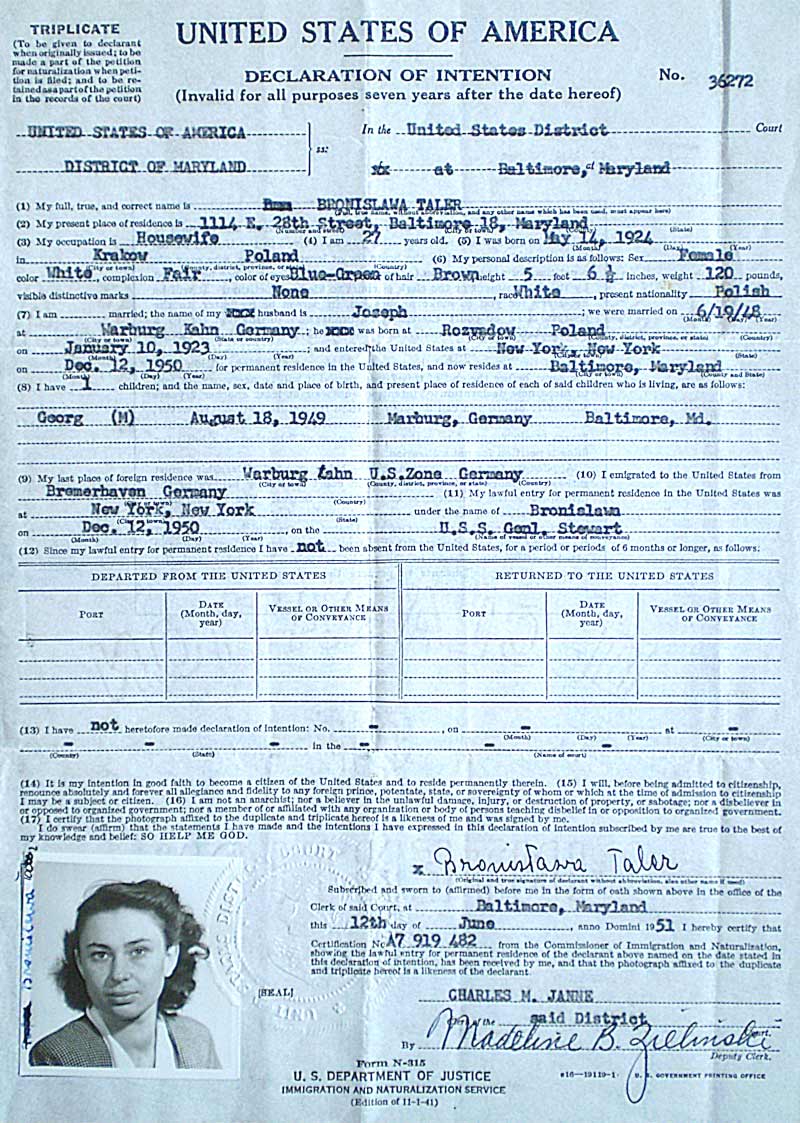 TRIPLICATE
(To be given to declarant
when originally issued; to be
made a part of the petition
for naturalization when peti-
tion is filed; and to be re-
tained as a part of the petition
in the records of the court)
UNITED STATES OF AMERICA
DECLARATION OF INTENTION
(Invalid for all purposes seven years after the date hereof)
No. 36272
UNITED STATES OF AMERICA
DISTRICT OF MARYLAND
ss:
In the United States District Court
at Baltimore, Maryland
(1) My full, true, and correct name is BRONISLAWA TALER
(Full, true name, without abbreviation, and any other name which has been used, must appear here)
(2) My present place of residence is 1114 E. 28th Street, Baltimore 18, Maryland
(Number and street) (City or town) (State)
(3) My occupation is Housewife (4) I am 27 years old. (5) I was born on May 14, 1924
(Month) (Day) (Year)
in Krakow Poland (6) My personal description is as follows: Sex Female
(City or town) (County, district, province, or state) (Country)
color White, complexion Fair, color of eyes Blue-Green of hair Brown, height 5 feet 6 ½ inches, weight 120 pounds,
visible distinctive marks None, race White, present nationality Polish
(7) I am married; the name of my husband is Joseph; we were married on 6/19/48
(Month) (Day) (Year)
at Warburg Kahn Germany; he was born at Rozvadow Poland
(City or town) (State or country) (City or town) (County, district, province, or state) (Country)
on January 10, 1923; and entered the United States at New York, New York
(Month) (Day) (Year) (City or town) (State)
on Dec. 12, 1950 for permanent residence in the United States, and now resides at Baltimore, Maryland
(Month) (Day) (Year) (City or town) (County and State)
(8) I have 1 children; and the name, sex, date and place of birth, and present place of residence of each of said children who is living, are as follows:
Georg (M) August 18, 1949 Marburg, Germany Baltimore, Md.
(9) My last place of foreign residence was Warburg Lahn U.S.Zone Germany (10) I emigrated to the United States from
(City or town) (County, district, province, or state) (Country)
Bremerhaven Germany (11) My lawful entry for permanent residence in the United States was
(City or town) (Country)
at New York, New York under the name of Bronislawa
(State)
on Dec. 12, 1950 on the U.S.S. Genl. Stewart
(Month) (Day) (Year) (Name of vessel or other means of conveyance)
(12) Since my lawful entry for permanent residence I have not been absent from the United States, for a period or periods of 6 months or longer, as follows:
DEPARTED FROM THE UNITED STATES RETURNED TO THE UNITED STATES
PORT DATE (Month, day, year) VESSEL OR OTHER MEANS OF CONVEYANCE PORT DATE (Month, day, year) VESSEL OR OTHER MEANS OF CONVEYANCE
(13) I have not heretofore made declaration of intention: No. -, on - at -
(Month) (Day) (Year) (City or town)
- - - in the - - -
(County) (State) (Name of court)
(14) It is my intention in good faith to become a citizen of the United States and to reside permanently therein. (15) I will, before being admitted to citizenship,
renounce absolutely and forever all allegiance and fidelity to any foreign prince, potentate, state, or sovereignty of whom or which at the time of admission to citizenship
I may be a subject or citizen. (16) I am not an anarchist; nor a believer in the unlawful damage, injury, or destruction of property, or sabotage; nor a disbeliever in
or opposed to organized government; nor a member of or affiliated with any organization or body of persons teaching disbelief in or opposition to organized government.
(17) I certify that the photograph affixed to the duplicate and triplicate hereof is a likeness of me and was signed by me.
I do swear (affirm) that the statements I have made and the intentions I have expressed in this declaration of intention subscribed by me are true to the best of
my knowledge and belief: SO HELP ME GOD.
x Bronisława Taler
(Original and true signature of declarant without abbreviation, also other name if used)
Subscribed and sworn to (affirmed) before me in the form of oath shown above in the office of the
Clerk of said Court, at Baltimore, Maryland
this 12th day of June, anno Domini 1951 I hereby certify that
Certification No A7 919 482 from the Commissioner of Immigration and Naturalization,
showing the lawful entry for permanent residence of the declarant above named on the date stated in
this declaration of intention, has been received by me, and that the photograph affixed to the duplicate
and triplicate hereof is a likeness of the declarant.
[SEAL]
CHARLES M. JANNE
of the said District Court.
By Madeline B. Zielinski
Deputy Clerk.
Form N-315
U. S. DEPARTMENT OF JUSTICE
IMMIGRATION AND NATURALIZATION SERVICE
(Edition of 11-1-41)
16—19119-1 U. S. GOVERNMENT PRINTING OFFICE